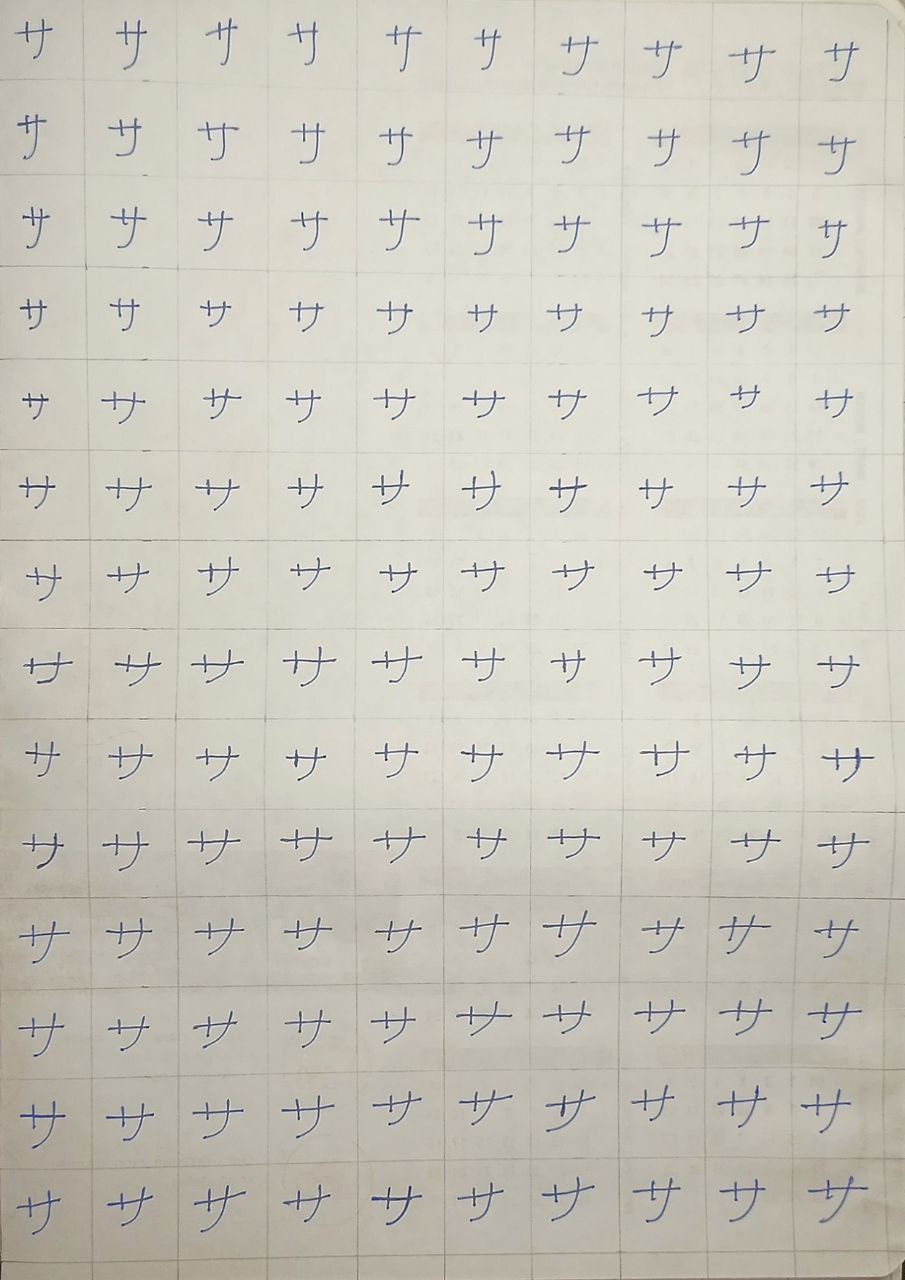 サ サ サ サ サ サ サ サ サ サ
サ サ サ サ サ サ サ サ サ サ
サ サ サ サ サ サ サ サ サ サ
サ サ サ サ サ サ サ サ サ サ
サ サ サ サ サ サ サ サ サ サ
サ サ サ サ サ サ サ サ サ サ
サ サ サ サ サ サ サ サ サ サ
サ サ サ サ サ サ サ サ サ サ
サ サ サ サ サ サ サ サ サ サ
サ サ サ サ サ サ サ サ サ サ
サ サ サ サ サ サ サ サ サ サ
サ サ サ サ サ サ サ サ サ サ
サ サ サ サ サ サ サ サ サ サ
サ サ サ サ サ サ サ サ サ サ